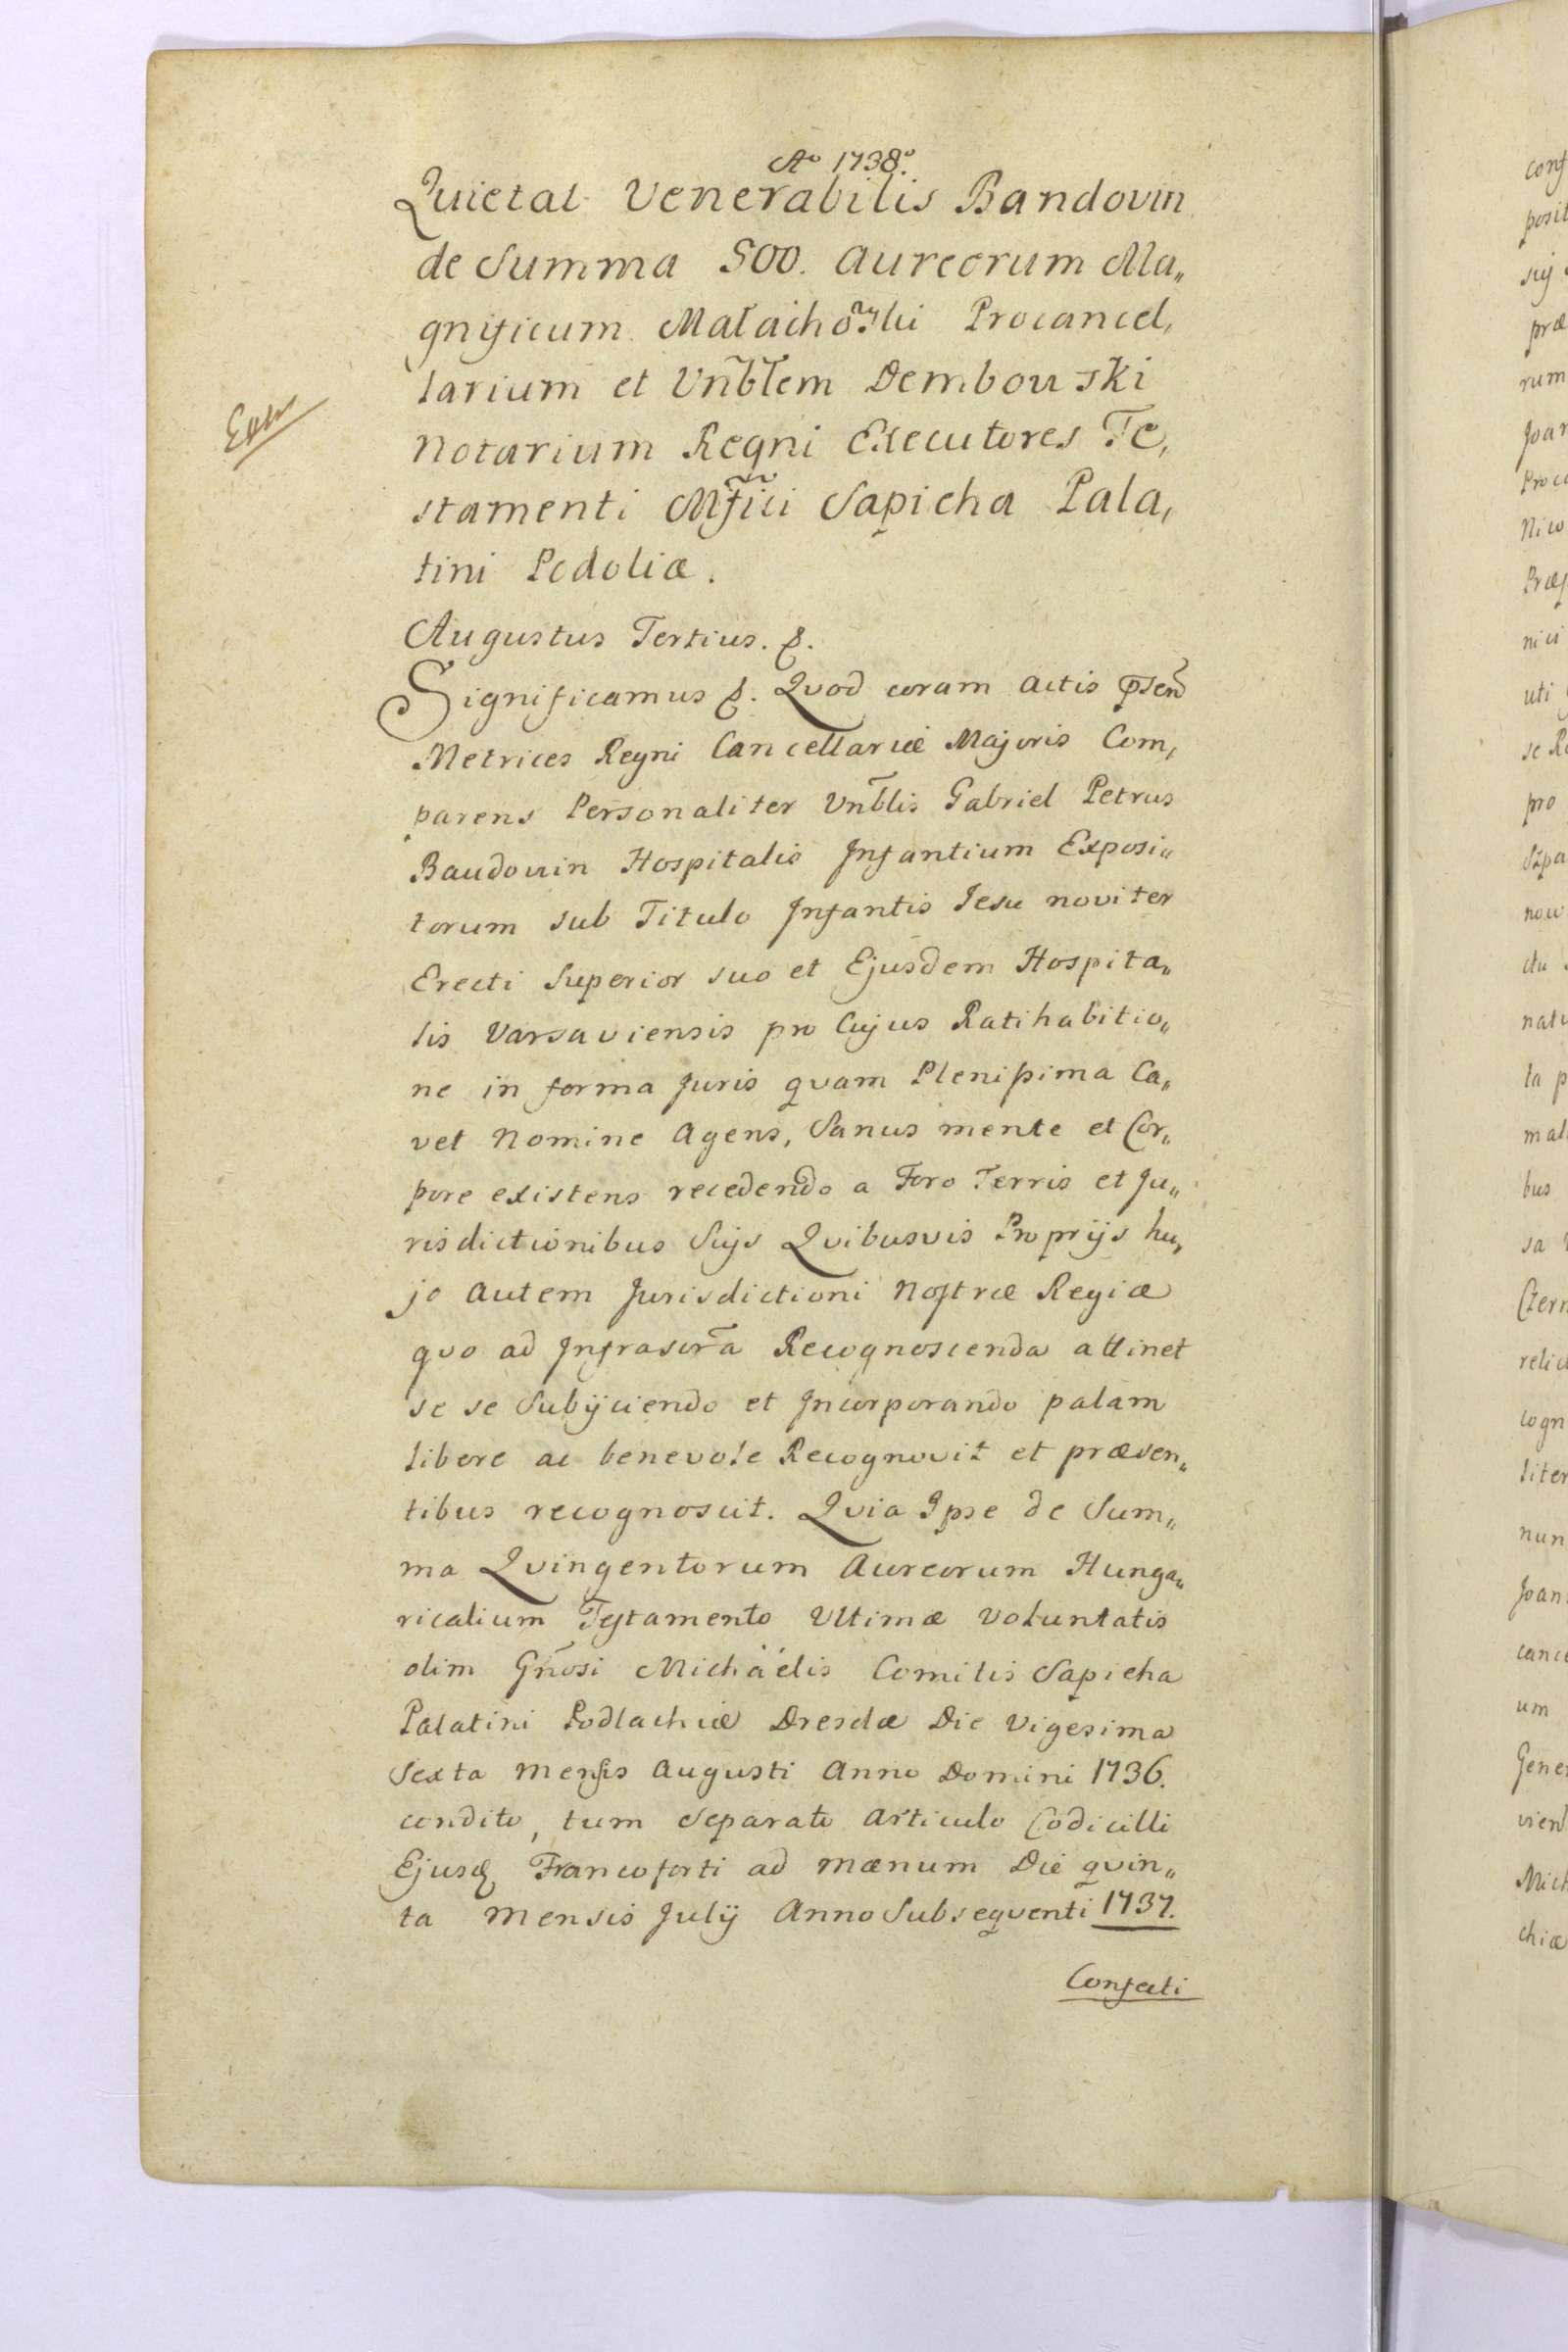 Ao 1738o.
Quietat Venerabilis Bandovin
de Summa 500. Aureorum Ma„
gnificum Małachow̃ski Procancel,
larium et Vñblem Dembowski
Notarium Regni Executores Te,
stamenti Mf̃ici Sapieha Pala,
tini Podoliæ.
Augustus Tertius. &.
Significamus &. Quod coram Actis p̃sen
Metrices Regni Cancellariæ Majoris Com,
parens Personaliter Vñblis Gabriel Petrus
Baudouin Hospitalis Infantium Exposi„
torum sub Titulo Infantis Jesu noviter
Erecti Superior suo et Ejusdem Hospita„
lis Varsaviensis pro Cujus Ratihabitio„
ne in forma Juris quam Plenissima Ca„
vet Nomine Agens, Sanus mente et Cor„
pore existens recedendo a Foro Terris et Ju„
risdictionibus Suÿs Quibusvis Proprijs hu,
jc Autem Jurisdictioni Nostræ Regiæ
quo ad Infrascr̃a Recognoscenda attinet
se se Subÿciendo et Incorporando palam
libere ac benevole Recognovit et præsen„
tibus recognoscit. Quia Ipse de Sum„
ma Quingentorum Aureorum Hunga„
ricalium Testamento Ultimæ Voluntatis
olim Gñosi Michaëlis Comitis Sapieha
Palatini Podlachiæ Dresdæ Die Vigesima
Sexta Mensis Augusti Anno Domini 1736.
condito, tum Separato Articulo Codicilli
Ejusq Francoforti ad Mænum Die quin„
ta Mensis Julÿ Anno Subsequenti 1737.
Confecti
conf
posit
suj
præ
rum
Joan
Proca
Nico
Præf
nici
uti
se Re
pro
Szpa
now
du
natu
ta p
mal
bus
sa
Czern
relic
cogn
liter
nun
Joan
canc
um
Gene
vien
Mich
chiæ